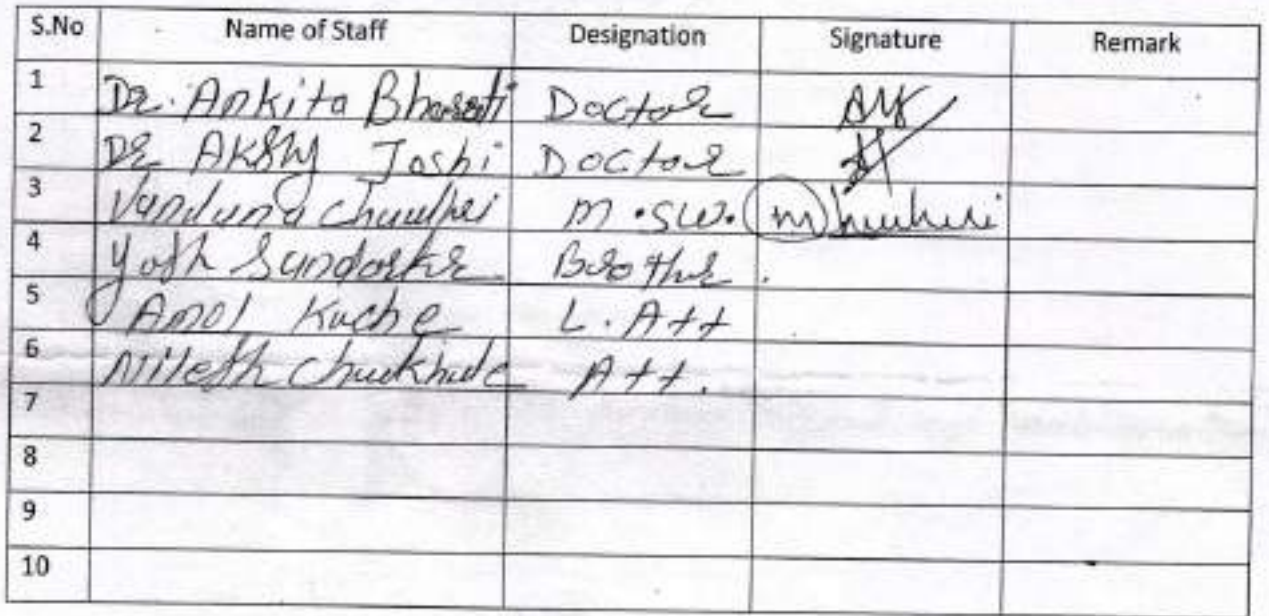 S.No Name of Staff Designation Signature Remark
1 Dr. Ankita Bharati Doctor
2 Dr Akshy Joshi Doctor
3 Vanduna M.S.W.
4 Yosh Brother
5 Amol Kuche L. Att
6 Nilesh Att.
7
8
9
10